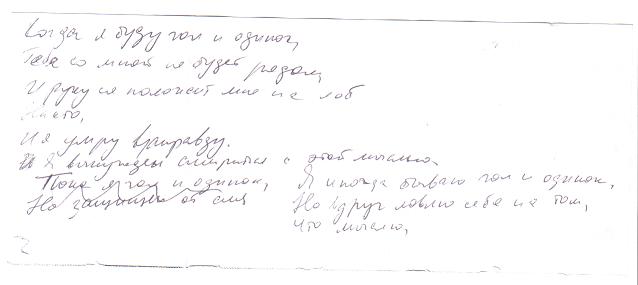 Когда я буду гол и одинок,
Тебя со мной не будет рядом,
И руку не положит мне на лоб
Никто,
И я умру взаправду.
И я вынужден смириться с этой мыслью
Пока я гол и одинок,
Но защищён от
Я иногда бываю гол и одинок,
Но вдруг ловлю себя на том,
Что мыслю,